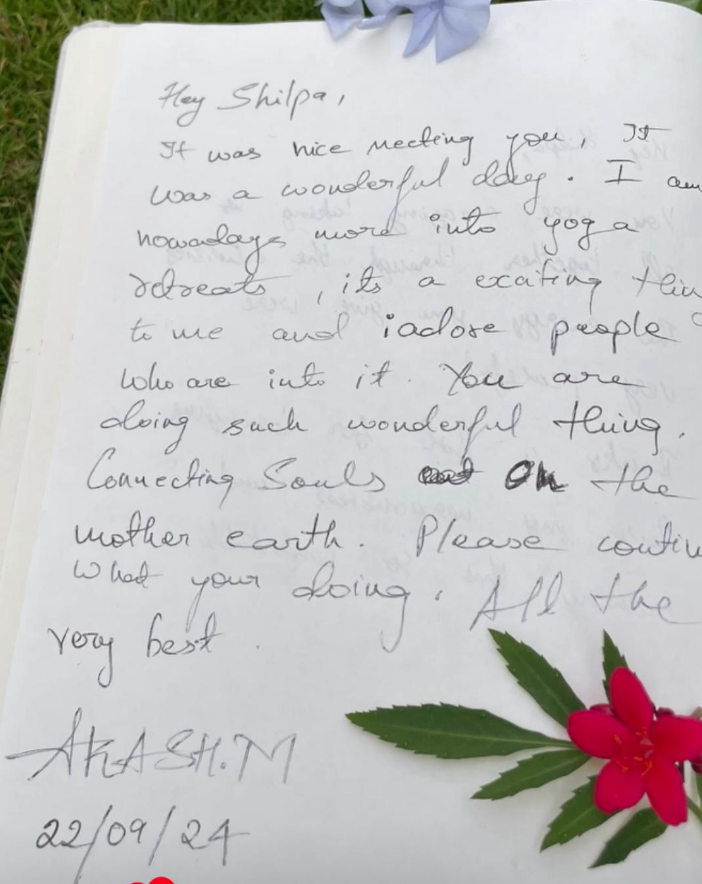 Hey Shilpa,
It was nice meeting you, It
was a wonderful day. I am
nowadays more into yoga
retreats, its a exciting thin
to me and iadore people
who are into it. You are
doing such wonderful thing.
Connecting Souls on the
mother earth. Please contin
what your doing. All the
very best.
AKASH.M
22/09/24